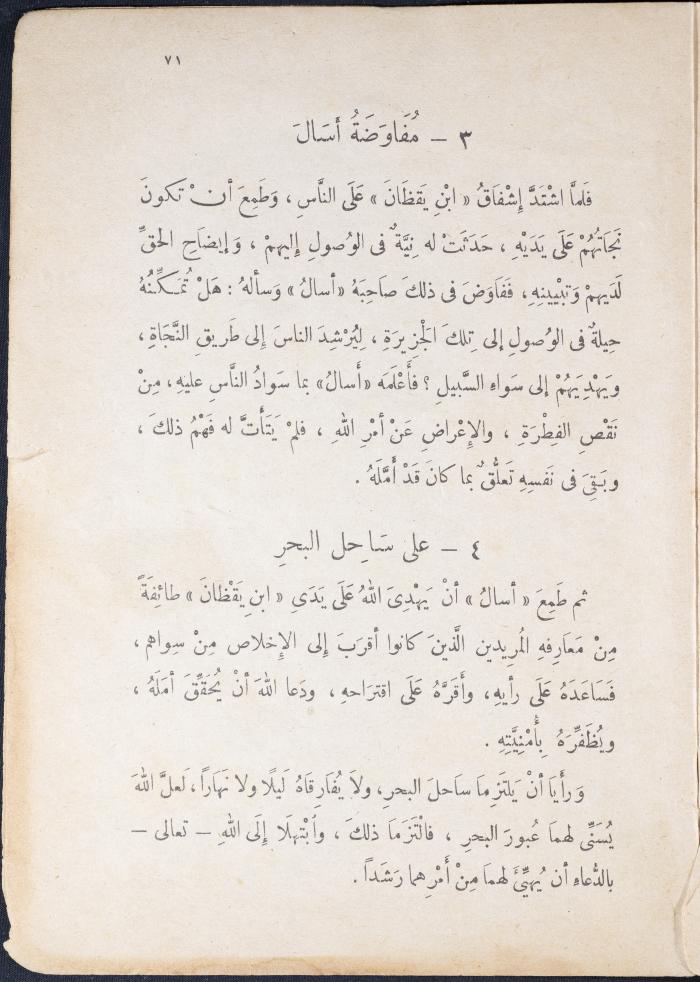 ٧١
٣ – مُفَاوَضَةُ أَسَالَ
فَلمَّا اشْتَدَّ إِشْفَاقُ « ابْنِ يَقظَانَ » عَلَى النَّاسِ ، وَطَمِعَ أنْ تكونَ
نَجَاتُهُمْ عَلَى يَدَيْهِ ، حَدَثَتْ له نِيَّةٌ فى الوُصولِ إليهِمْ ، وَإيضَاحِ الحقِّ
لَدَيهِمْ وَتبْيينِهِ، ففَاوَضَ فى ذلكَ صاحِبَهُ «أسالُ» وَسألهُ : هَلْ تُمَكِّنُهُ
حِيلةٌ فى الوُصولِ إلى تِلكَ الْجَزِيرَةِ ، لِيُرْشِدَ الناسَ إلى طَريقِ النَّجَاةِ ،
ويَهْدِيَهُمْ إلى سَواءِ السَّبيلِ ؟ فأَعْلَمَه «أَسالُ» بما سَوادُ النَّاسِ عليهِ، مِنْ
نَقْصِ الفِطْرَةِ ، والإِعْراضِ عَنْ أمْرِ اللهِ ، فلمْ يَتَأَتَّ له فَهْمُ ذلكَ ،
وبَقِىَ فى نَفسِهِ تَعلُّقٌ بما كانَ قَدْ أَمَّلَهُ .
٤ – على سَاحِل البحرِ
ثم طَمِعَ « أسالُ » أنْ يَهْدِىَ اللهُ عَلَى يَدَىِ « ابنِ يَقْظانَ » طائِفَةً
مِنْ مَعَارِفهِ المُرِيدين الَّذينَ كانوا أقرَبَ إِلى الإِخلاص مِنْ سِواهم ،
فَسَاعَدَهُ عَلَى رأيهِ، وأَقَرَّهُ عَلَى اقتراحهِ ، ودَعا اللهَ أنْ يُحَقِّقَ أمَلَهُ ،
ويُظَفِّرَهُ بِأُمْنِيَّتِهِ .
وَرأَيَا أنْ يَلتزِمَا ساحلَ البحرِ، ولاَ يُفَارِقَاهُ لَيلًا ولا نهَارًا، لَعلَّ اللهَ
يُسَنِّى لهمَا عُبورَ البحرِ ، فالْتَزَمَا ذلكَ ، وابْتَهَلَا إِلَى اللهِ – تعالى –
بالدُّعاءِ أن يُهيِّئَ لهمَا مِنْ أَمْرِهما رَشَدًا .